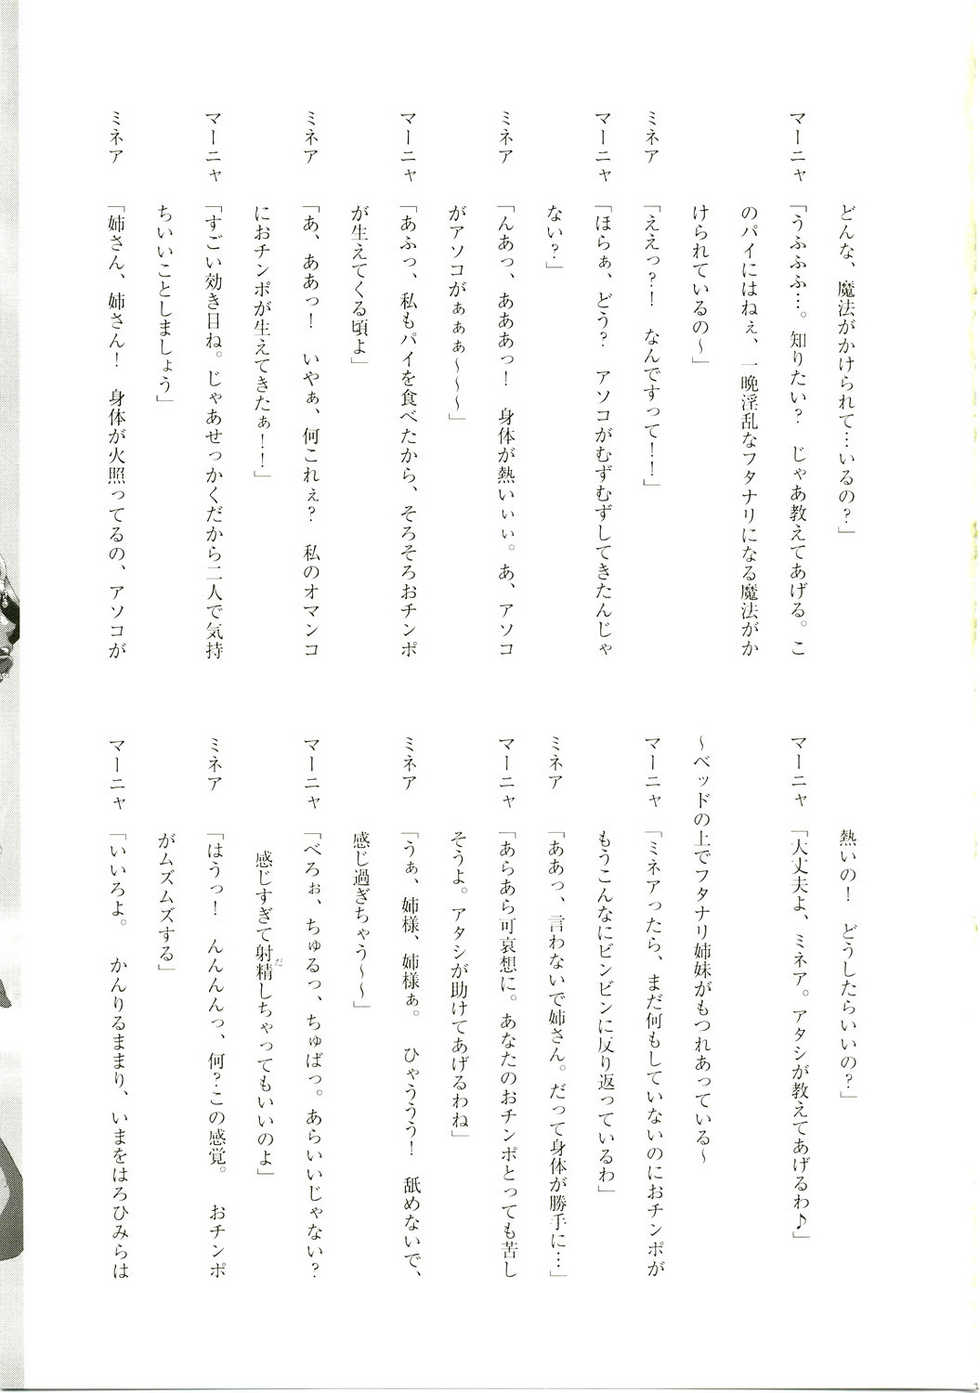 どんな、魔法がかけられて…いるの？」
マーニャ 「うふふふ…。知りたい？ じゃあ教えてあげる。こ
のパイにはねぇ、一晩淫乱なフタナリになる魔法がか
けられているの～」
ミネア 「ええっ？！ なんですって！！」
マーニャ 「ほらぁ、どう？ アソコがむずむずしてきたんじゃ
ない？」
ミネア 「んあっ、あああっ！ 身体が熱いぃぃ。あ、アソコ
がアソコがぁぁぁ～～～」
マーニャ 「あふっ、私もパイを食べたから、そろそろおチンポ
が生えてくる頃よ」
ミネア 「あ、ああっ！ いやぁ、何これぇ？ 私のオマンコ
におチンポが生えてきたぁ！！」
マーニャ 「すごい効き目ね。じゃあせっかくだから二人で気持
ちいいことしましょう」
ミネア 「姉さん、姉さん！ 身体が火照ってるの、アソコが
熱いの！ どうしたらいいの？」
マーニャ 「大丈夫よ、ミネア。アタシが教えてあげるわ♪」
～ベッドの上でフタナリ姉妹がもつれあっている～
マーニャ 「ミネアったら、まだ何もしていないのにおチンポが
もうこんなにビンビンに反り返っているわ」
ミネア 「ああっ、言わないで姉さん。だって身体が勝手に…」
マーニャ 「あらあら可哀想に。あなたのおチンポとっても苦し
そうよ。アタシが助けてあげるわね」
ミネア 「うぁ、姉様、姉様ぁ。 ひゃううう！ 舐めないで、
感じ過ぎちゃう～～」
マーニャ 「べろぉ、ちゅるっ、ちゅばっ。あらいいじゃない？
感じすぎて射精しちゃってもいいのよ」
ミネア 「はうっ！ んんんんっ、何？この感覚。 おチンポ
がムズムズする」
マーニャ 「いいろよ。 かんりるままり、いまをはろひみらは